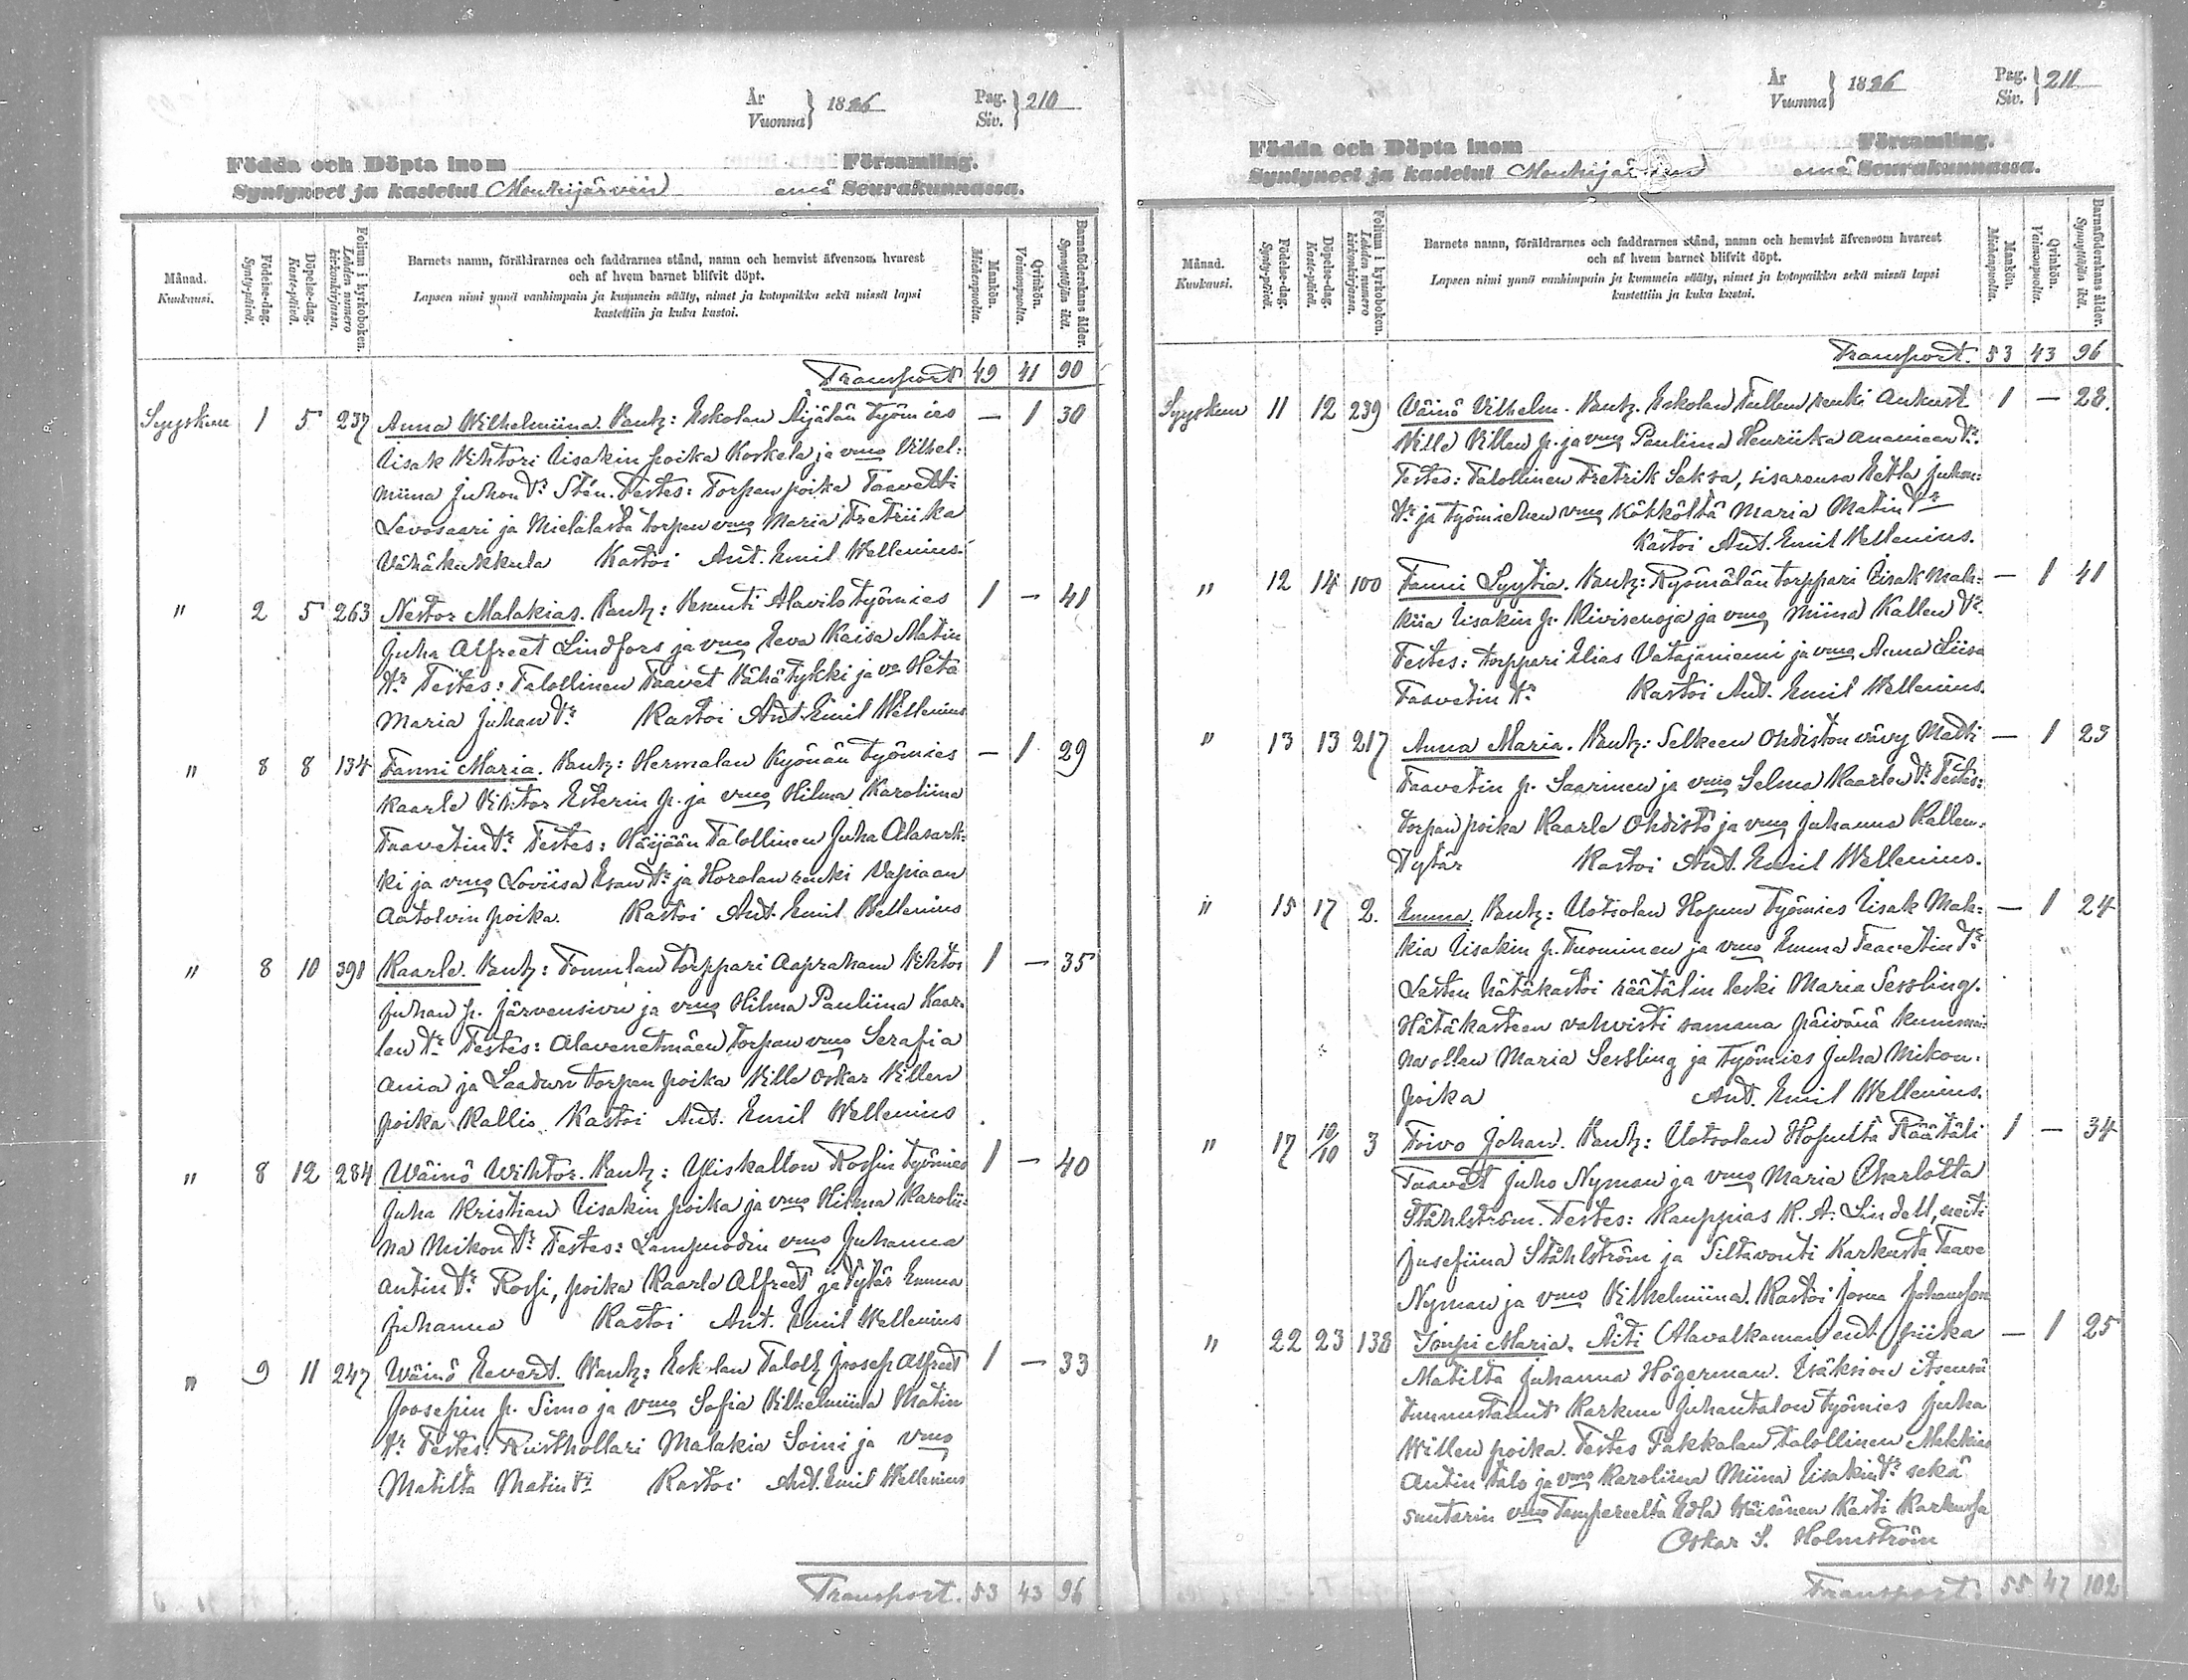 År
Vuonna } 1896 Pag.
Siv. } 210
Födda och Döpta inom Församling.
Syntyneet ja kastetut Mouhijärven emä Seurakunnassa.
Månad.
Kuukausi.
Födelse-dag.
Synty-päivä.
Döpelse-dag.
Kaste-päivä.
Folium i kyrkoboken.
Lehden numero
kirkonkirjassa.
Barnets namn, föräldrarnes och faddrarnes stånd, namn och hemvist äfvensom hvarest
och af hvem barnet blifvit döpt.
Lapsen nimi ynnä vanhimpain ja kummein sääty, nimet ja kotopaikka sekä missä lapsi
kastettiin ja kuka kastoi.
Mankön.
Miehenpuolta.
Qvinkön.
Vaimonpuolta.
Barnaföderskans ålder.
Synnyttäjän ikä.
Transport 49 41 90
Syyskuu 1 5 237 Anna Wilhelmiina. Vanh: Eskolan Äijälän työmies — 1 30
Iisak Vihtori Iisakin poika Koskela ja vmo Vilhel:
miina Juhon tr Stén. Testes: Torpan poika Taavetti
Levosaari ja Mielalasta torpan vmo Maria Fretriika
Vähäkukkula Kastoi Ant. Emil Wellenius.
" 2 5 263 Nestor Malakias. Vanh: Pemuti Alavilo työmies 1 — 41
Juha Alfreet Lindfors ja vmo Eeva Kaisa Matin
tr Testes: Talollinen Taavet Vähätykki ja vo Heta
Maria Juhan tr Kastoi Ant. Emil Wellenius
" 8 8 134 Fanni Maria. Vanh: Hermalan Kyönän työmies — 1 29
Kaarle Vihtor Esterin p. ja vmo Hilma Karoliina
Taavetin tr Testes: Häijään Talollinen Juha Alasark:
ki ja vmo Loviisa Esan tr ja Horolan renki Vapiaan
Aatolvin poika. Kastoi Ant. Emil Wellenius
" 8 10 391 Kaarle. Vanh: Tomulan torppari Aapraham Vihtor 1 — 35
Juhan p. Järvensivu ja vmo Hilma Pauliina Kaar:
len tr Testes: Alavenetmäen torpan vmo Serafia
Ania ja Laadun torpan poika Ville Oskar Villen
poika Kallio. Kastoi Ant. Emil Wellenius
" 8 12 284 Wäinö Wihtor. Vanh: Yliskallon Rossin työmies 1 — 40
Juha Kristian Iisakin poika ja vmo Hilma Karolii:
na Mikon tr Testes: Lampuodin vmo Juhanna
Antin tr Rossi, poika Kaarle Alfreet ja tytär Emma
Juhanna Kastoi Ant. Emil Wellenius
" 9 11 247 Wäinö Eevert. Vanh: Eskolan Taloll. Joosep Alfreet 1 — 33
Joosepin p. Simo ja vmo Sofia Vilhelmiina Matin
tr Testes: Rusthollari Malakia Soini ja vmo
Matilta Matin tr Kastoi Ant. Emil Wellenius
Transport. 53 43 96
År
Vuonna } 1896 Pag.
Siv. } 211
Födda och Döpta inom Församling.
Syntyneet ja kastetut Mouhijärven emä Seurakunnassa.
Månad.
Kuukausi.
Födelse-dag.
Synty-päivä.
Döpelse-dag.
Kaste-päivä.
Folium i kyrkoboken.
Lehden numero
kirkonkirjassa.
Barnets namn, föräldrarnes och faddrarnes stånd, namn och hemvist äfvensom hvarest
och af hvem barnet blifvit döpt.
Lapsen nimi ynnä vanhimpain ja kummein sääty, nimet ja kotopaikka sekä missä lapsi
kastettiin ja kuka kastoi.
Mankön.
Miehenpuolta.
Qvinkön.
Vaimonpuolta.
Barnaföderskans ålder.
Synnyttäjän ikä.
Transport. 53 43 96
Syyskuu 11 12 239 Väinö Vilhelm. Vanh. Eskolan Tullun renki Aukust 1 — 28.
Ville Villen p. ja vmo Pauliina Henriika Ananiaan tr.
Testes: Talollinen Fretrik Saksa, sisarensa Eetla Juhon:
tr ja työmiehen vmo Kökköltä Maria Matin tr
Kastoi Ant. Emil Wellenius.
" 12 14 100 Fanni Lyytia. Vanh: Ryömälän torppari Iisak Mala: — 1 41
kiia Iisakin p. Kivisenoja ja vmo Miina Kallen tr.
Testes: torppari Elias Vatajaniemi ja vmo Anna Liisa
Taavetin tr Kastoi Ant. Emil Wellenius.
" 13 13 217 Anna Maria. Vanh: Selkeen Ohdiston vävy Matti — 1 23
Taavetin p. Saarinen ja vmo Selma Kaarlen tr. Testes:
torpan poika Kaarle Ohdistö ja vmo Juhanna Kallen:
tytär Kastoi Ant. Emil Wellenius.
" 15 17 2. Emma. Vanh: Uotsolan Hopun työmies Iisak Mala: — 1 24
kia Iisakin p. Tuominen ja vmo Emma Taavetin tr
Lasten hätäkastoi räätälin leski Maria Sessling.
Hätäkasteen vahvisti samana päivänä kummei:
na ollen Maria Sessling ja työmies Juha Mikon:
poika Ant. Emil Wellenius.
" 17 10/10 3 Toivo Johan. Vanh: Uotsolan Hopulta Räätäli 1 — 34
Taavet Juho Nyman ja vmo Maria Charlotta
Ståhlström. Testes: Kauppias K. A. Lindell, neiti
Josefiina Ståhlström ja Siltavouti Karkusta Taave
Nyman ja vmo Vilhelmiina. Kastoi Josua Johansson
" 22 23 138 Impi Maria. Äiti Alavalkaman ent. piika — 1 25
Matilta Juhanna Högerman. Isäksion itsensä
tunnustanut Karkun Juhantalon työmies Juha
Willen poika. Testes Pakkalan talollinen Malakias
Antin talo ja vmo Karoliina Miina Iisakin tr sekä
suutarin vmo Tampereelta Edla Wäisänen Kasti Karkussa
Oskar S. Holmström
Transport. 55 47 102